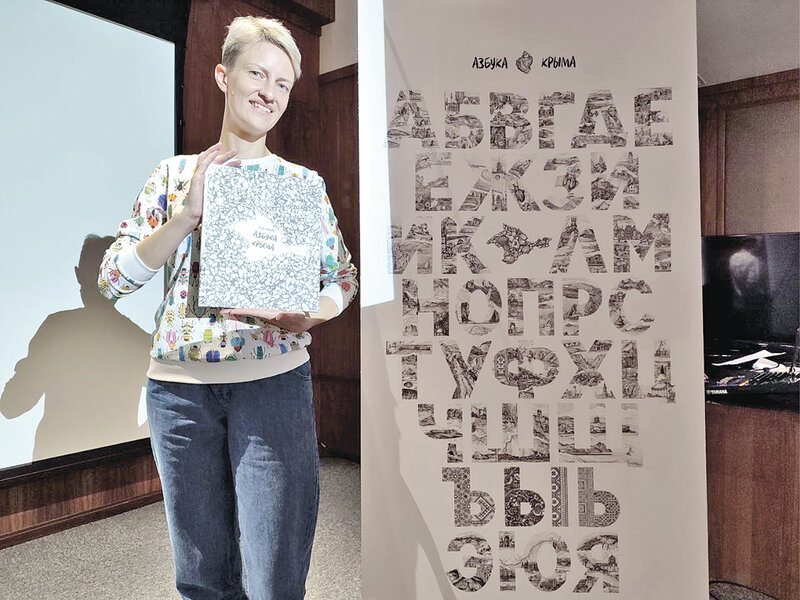 АЗБУКА КРЫМА
АБВГДЕ
ЁЖЗИ
ЙК ЛМ
НОПРС
ТУФХЦ
ЧШЩ
ЪЫЬ
ЭЮЯ
АЗБУКА
КРЫМА
YAMAHA